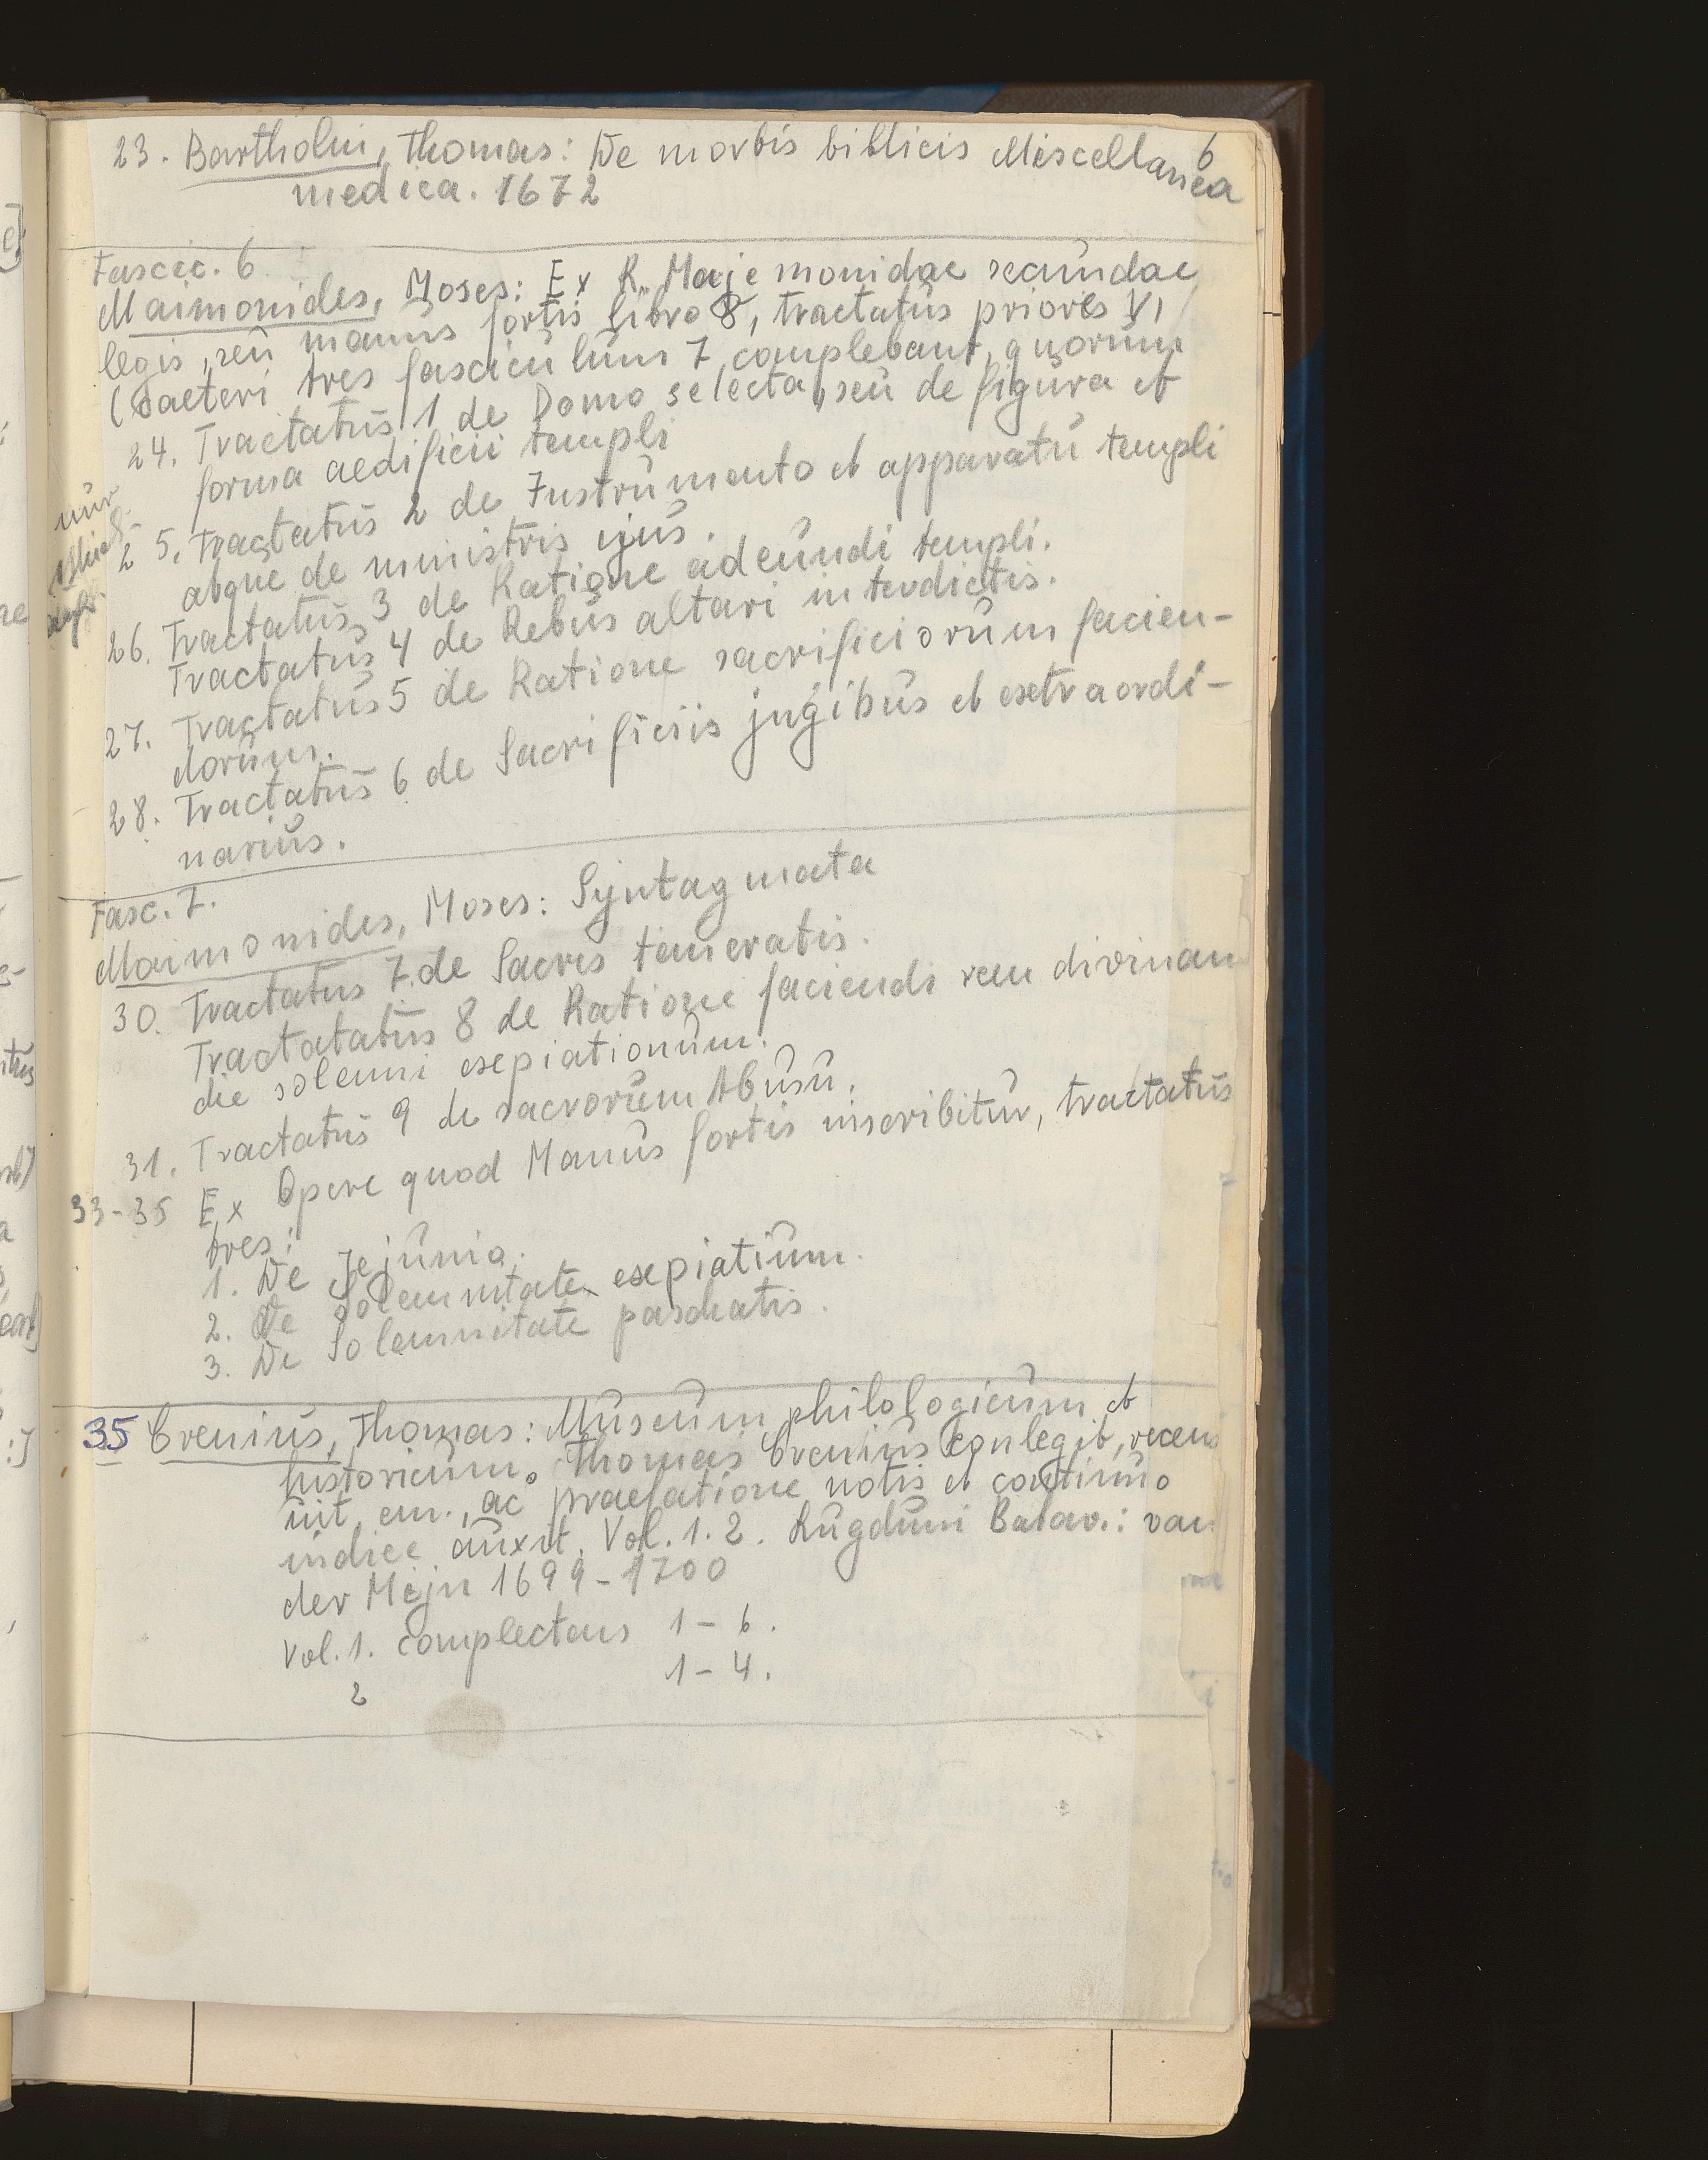 6
23. Bartholin, Thomas: De morbis biblicis Miscellanea
medica. 1672
Fascic. 6
Maimonides, Moses: Ex R. Majemonidae secundae
legis, seu manus fortis libro 8, tractatus priores VI
(Caeteri tres fasciculum 7 complebant, quorum
24. Tractatus 1 de Domo selecta, seu de figura et
forma aedificii templi
25. Tractatus 2 de Instrumento et apparatu templi
atque de ministris ejus.
26. Tractatus 3 de Ratione adeundi templi.
Tractatus 4 de Rebus altari interdictis.
27. Tractatus 5 de Ratione sacrificiorum facien-
dorum.
28. Tractatus 6 de Sacrificiis jugibus et extraordi-
narius.
Fasc. 7.
Maimonides, Moses: Syntagmata
30. Tractatus 7. de Sacris temeratis.
Tractatatus 8 de Ratione faciendi rem divinam
die solemni expiationum.
31. Tractatus 9 de sacrorum Abusu.
33-35 Ex Opere quod Manus fortis inscribitur, tractatus
tres:
1. De Jejunio.
2. De Solemnitate expiatium.
3. De Solemnitate paschatis.
35 Crenius, Thomas: Museum philologicum et
historicum. Thomas Crenius conlegit, recens
uit, em., ac praefatione notis et continuo
indice auxit. Vol. 1. 2. Lugduni Batav.: van
der Mijn 1699-1700
Vol. 1. complectens 1-6.
2 1-4.